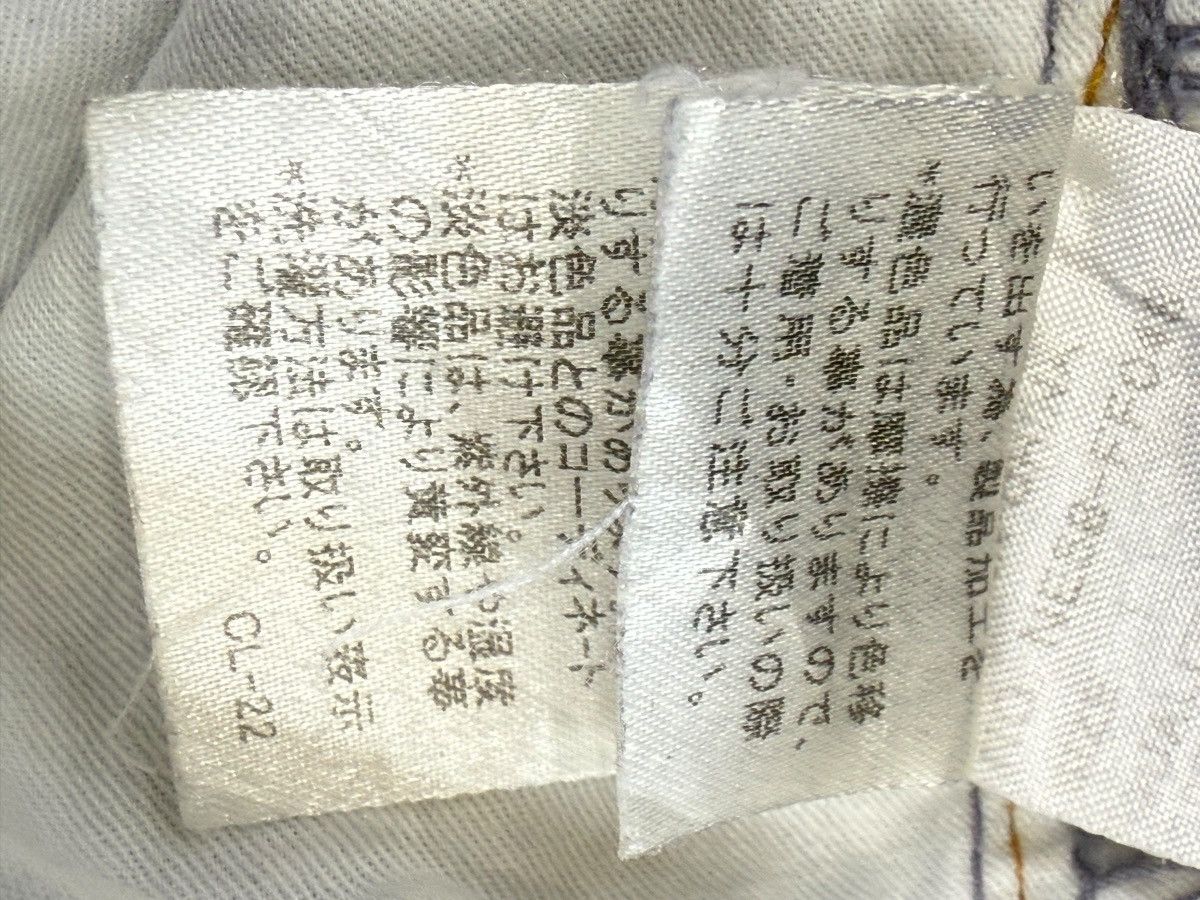 いを出す為、製品加工を
行っています。
*濃色品は摩擦により色移
りする事がありますので、
ご着用・お取り扱いの際
は十分ご注意下さい。
りする事が
淡色品とのコーディネート
はお避け下さい。
*淡色品は、紫外線や湿度
の影響により黄変する事
があります。
*洗濯方法は取り扱い表示
をご確認下さい。
CL-22